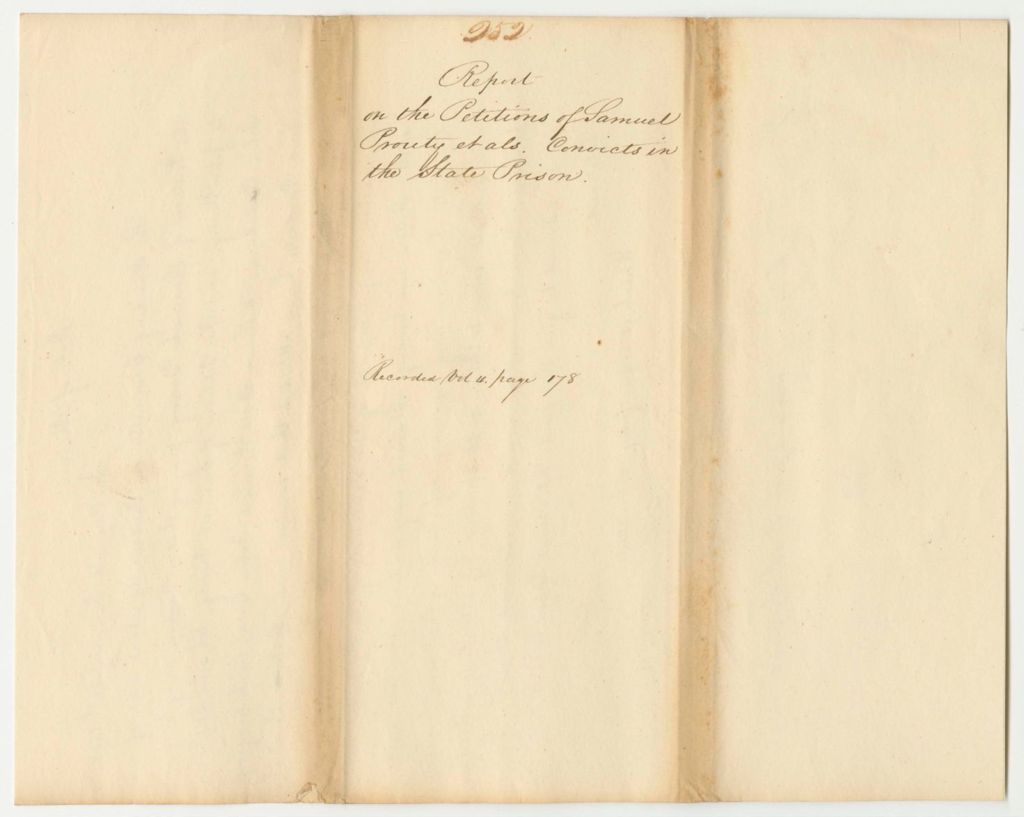 252.
Report
on the Petitions of Samuel
Prouty et als. Convicts in
the State Prison.
Recorded Vol 4. page 178